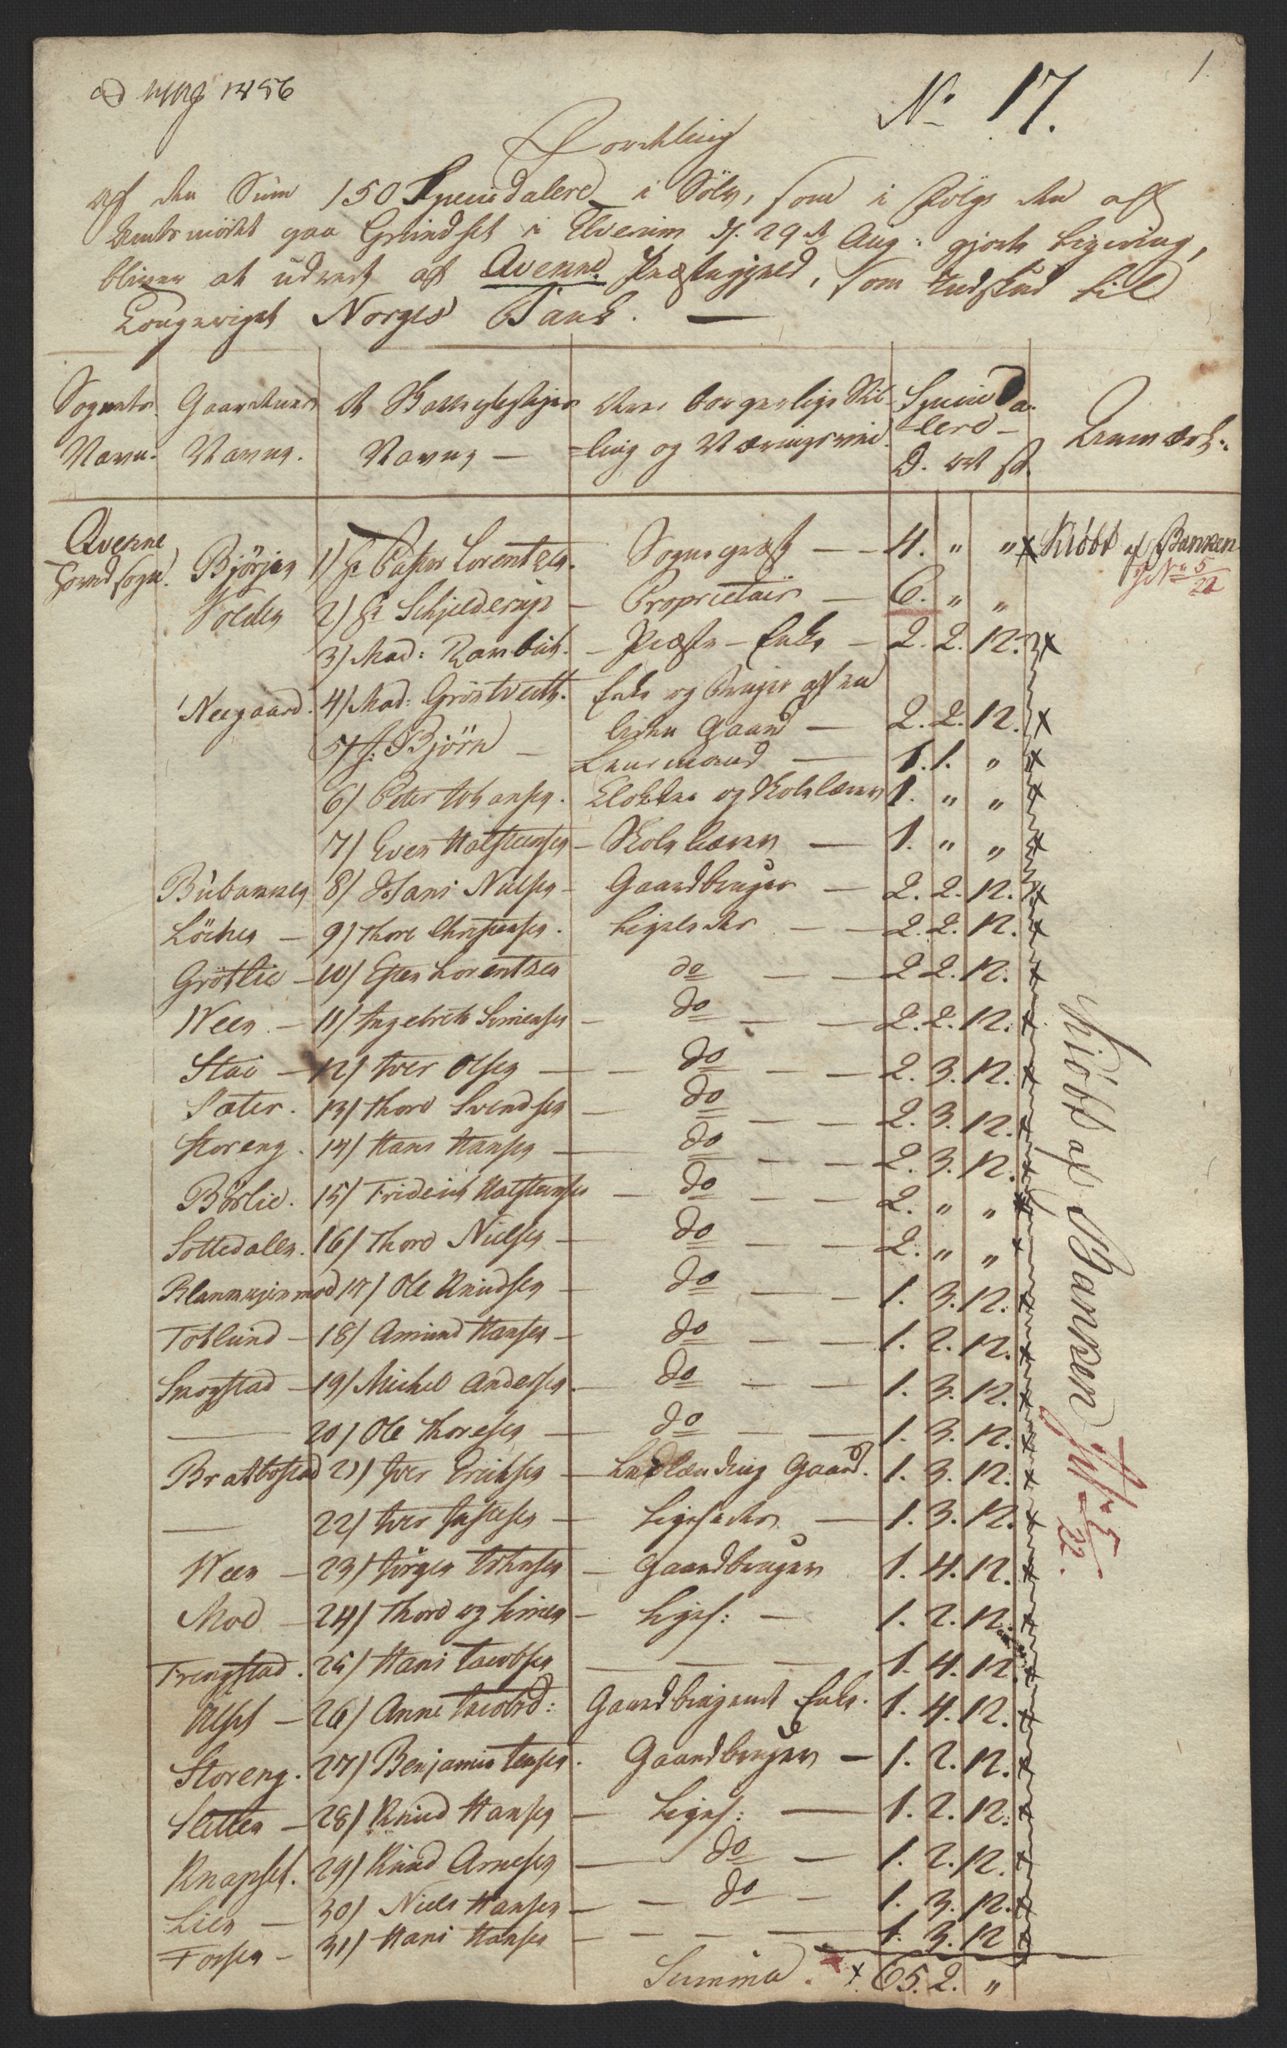 1.
No 17.
Fordeling
af den Sum 150 Speciedalere i Sølv, som i Følge den af
Amtsmødet paa Grindset i Elverum d. 29de Aug: gjorte Ligning,
bliver at udrede af Qvenne Præstegjeld, som Indskud til
Kongeriget Norges Bank. —
Sognets Navn. Gaardenes Navne. De Bekostligers Navne — Deres borgerlige Stilling og Næringsvei. Speciedalere D. ort ß. Anmærk:
Qvenne Hovedsogn. Bjørjen 1) Hr Pastor Lorentzen. Sognepræst — 4. " " x Kiøbt af Banken
No 5/22
Volden 2) Hr Schjelderup — Proprietair — 6. " "
3) Mad: Rambech. — Præste-Enke — 2. 2. 12. x
Neegaard. 4) Mad: Grøstvedt. Enke og Bruger af en
liden Gaard — 2. 2. 12. x
5) H: Bjørn — Lensmand — 1. 1. " x
6) Peter Johansen. Klokker og Skolelærer 1. " " x
7) Even Halsteensen — Skolelærer — 1. " " x
Bubakken 8) Hans Nilsen — Gaardbruger — 2. 2. 12. x
Löchen — 9) Thore Christensen. Ligeledes — 2. 2. 12. x
Grøtlie — 10) Esten Lorentzen do — 2. 2. 12. x
Neen — 11) Ingebret Simensen — do — 2. 2. 12. x
Stai — 12) Iver Olsen — do — 2. 3. 12. x
Sæter. 13) Thord Svendsen — do — 2. 3. 12. x
Storeng. 14) Hans Hansen — do — 2. 3. 12. x
Børlie. 15) Friderich Halsteensen — do — 2. " " x
Sottedalen. 16) Thord Nielsen — do — 2. " " x
17) Ole Knudsen — do — 1. 3. 12. x
Toslund — 18) Amund Hansen — do — 1. 2. 12. x
Smogstad — 19) Michel Andersen. — do — 1. 3. 12. x
— 20) Ole Thoresen — do — 1. 3. 12. x
Bratbostad 21) Iver Erichsen — Gaard. 1. 3. 12. x
— 22) Iver Justesen — Ligeledes — 1. 3. 12. x
Neen — 23) Jørgen Johnsen — Gaardbruger 1. 4. 12. x
Moe — 24) Thord og Simen — Liges: — 1. 2. 12. x
Trengstad. 25) Hans Jacobsen — 1. 4. 12. x
Ulset — 26) Anne Jacobsd: Gaardbrugende Enke. 1. 4. 12. x
Storeng. 27) Benjamin Jensen. Gaardbruger — 1. 2. 12. x
Sletten — 28) Knud Hansen — Liges: — 1. 2. 12. x
Knapset. 29) Knud Arnesen — do — 1. 2. 12. x
Lien — 30) Niels Hansen — do — 1. 3. 12. x
Fossen — 31) Hans Hansen — 1. 3. 12 x
Summa. x 65. 2. "
Kiøbt af Banken No 5/22.